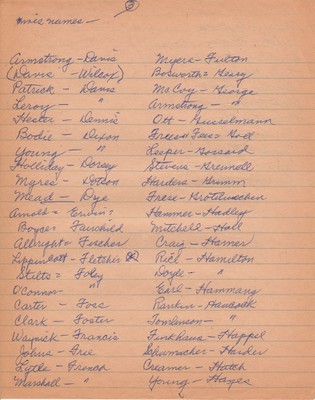 ③
names —
Armstrong - Davis
(Davis - Wilcox)
Patrick - Davis
Leroy - "
Hester - Dennis
Bodie - Dixon
Young - "
Holliday - Dorsey
Myres - Dotson
Mead - Dye
Arnold = Erwin =
Boyce = Fairchild
Albright = Fischer
Lippencott - Fletcher
Stilts = Foley
O'Connor - "
Carter - Foss
Clark - Foster
Waynick - Francis
Johns - Free
Lytle - French
Marshall - "
Myers - Fulton
Bosworth = Geary
McCoy - George
Armstrong - "
Ott -
Frees = Goll
Leeper - Gossard
Stevens - Greunell
Harders - Grimm
Frese - Grotelueschen
Hammer - Hadley
Mitchell - Hall
Craig - Hamer
Riel - Hamilton
Doyle - "
Earl - Hammang
Rankin - Hancock
Tomlinson - "
Funkhaus - Happel
Schumacher - Harder
Creamer - Hatch
Young - Hayes